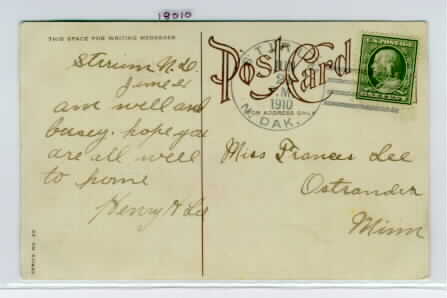 19010
THIS SPACE FOR WRITING MESSAGES
Post Card
FOR ADDRESS ONLY
U.S. POSTAGE
1910
N. DAK.
Sturum N.D.
June
am well and
busey. hope you
are all well
to home
Henry H Lee
Miss Frances Lee
Ostrander
Minn